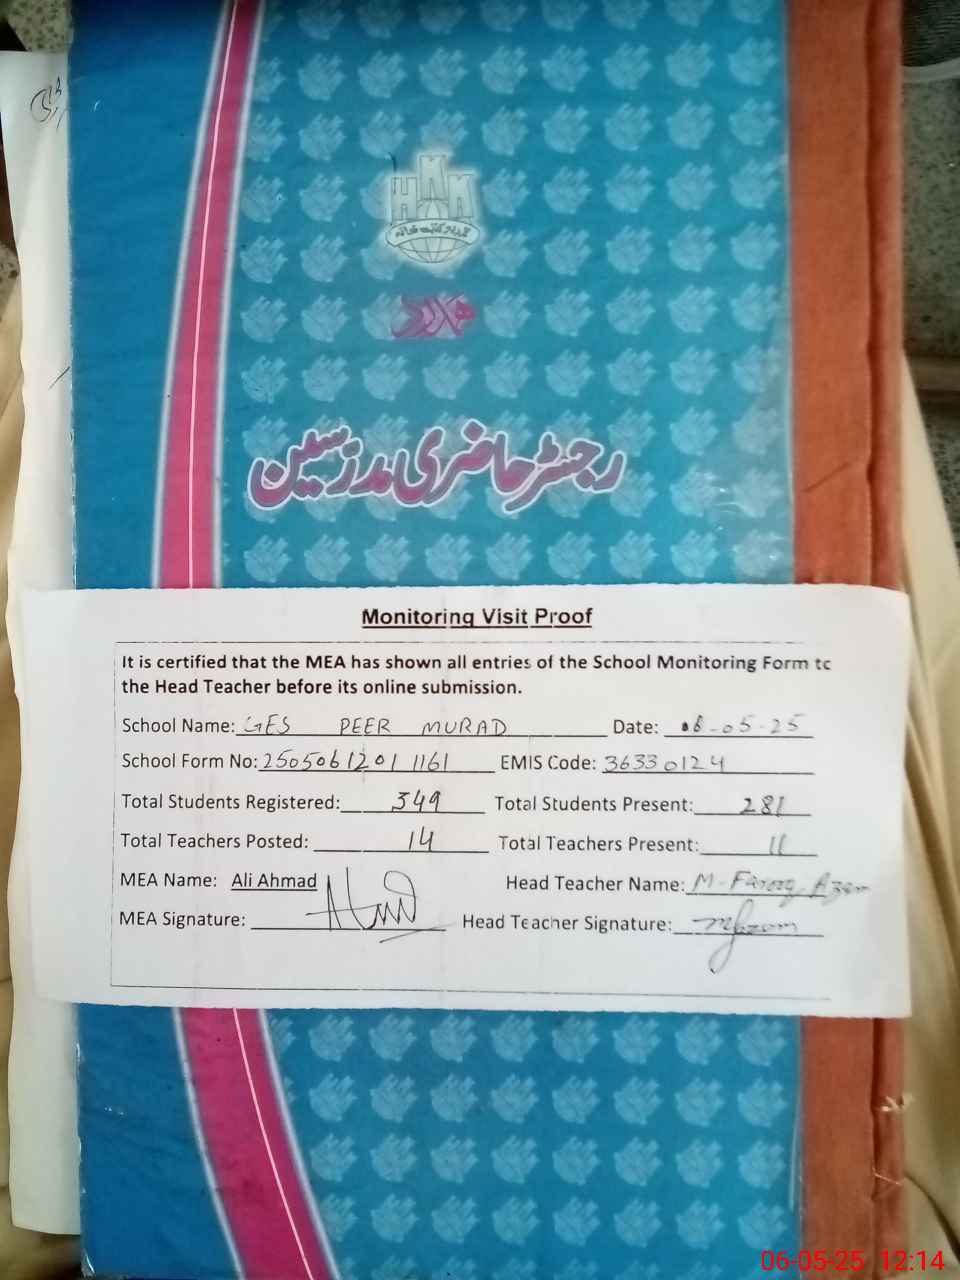 HKK
ہمدرد کتب خانہ
ہمدرد
رجسٹر حاضری مدرسین
Monitoring Visit Proof
It is certified that the MEA has shown all entries of the School Monitoring Form to
the Head Teacher before its online submission.
School Name: GES PEER MURAD Date: 06-05-25
School Form No: 2505061201 1161 EMIS Code: 36330124
Total Students Registered: 349 Total Students Present: 281
Total Teachers Posted: 14 Total Teachers Present: 11
MEA Name: Ali Ahmad Head Teacher Name: M-Farooq Azam
MEA Signature: Head Teacher Signature:
06-05-25 12:14